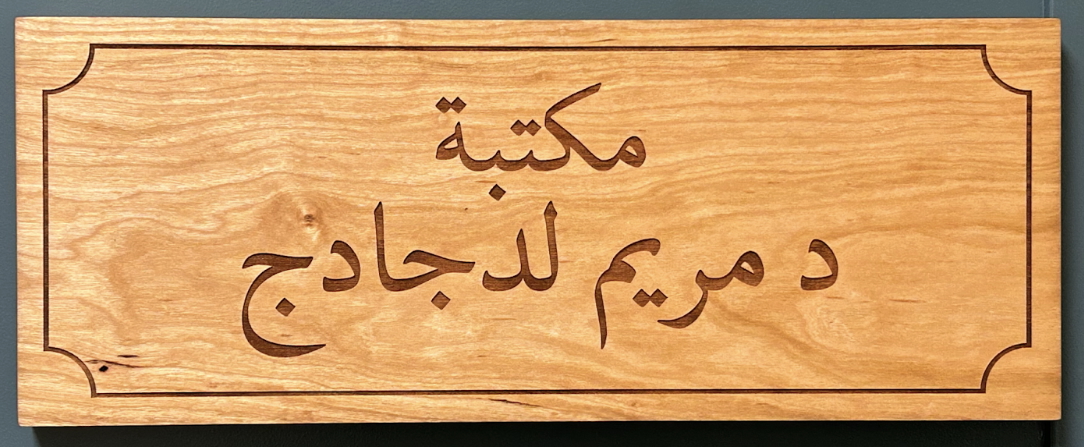 مكتبة
د مريم لدجادج